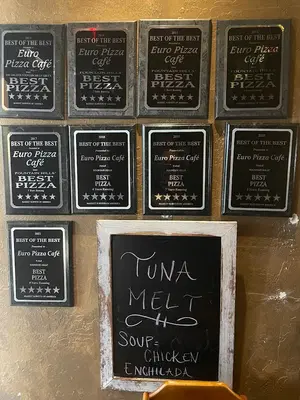 BEST OF THE BEST
Euro Pizza
Café
BEST
PIZZA
BEST OF THE BEST
Euro Pizza
Café
FOUNTAIN HILLS
BEST
PIZZA
BEST OF THE BEST
Euro Pizza
Café
FOUNTAIN HILLS
BEST
PIZZA
BEST OF THE BEST
Euro Pizza
Café
FOUNTAIN HILLS
BEST
PIZZA
BEST OF THE BEST
Euro Pizza
Café
FOUNTAIN HILLS
BEST
PIZZA
BEST OF THE BEST
Euro Pizza Café
BEST
PIZZA
BEST OF THE BEST
Euro Pizza
Café
BEST
PIZZA
BEST OF THE BEST
Euro Pizza Café
BEST
PIZZA
BEST OF THE BEST
Euro Pizza Café
BEST
PIZZA
TUNA
MELT
SOUP=
CHICKEN
ENCHILADA